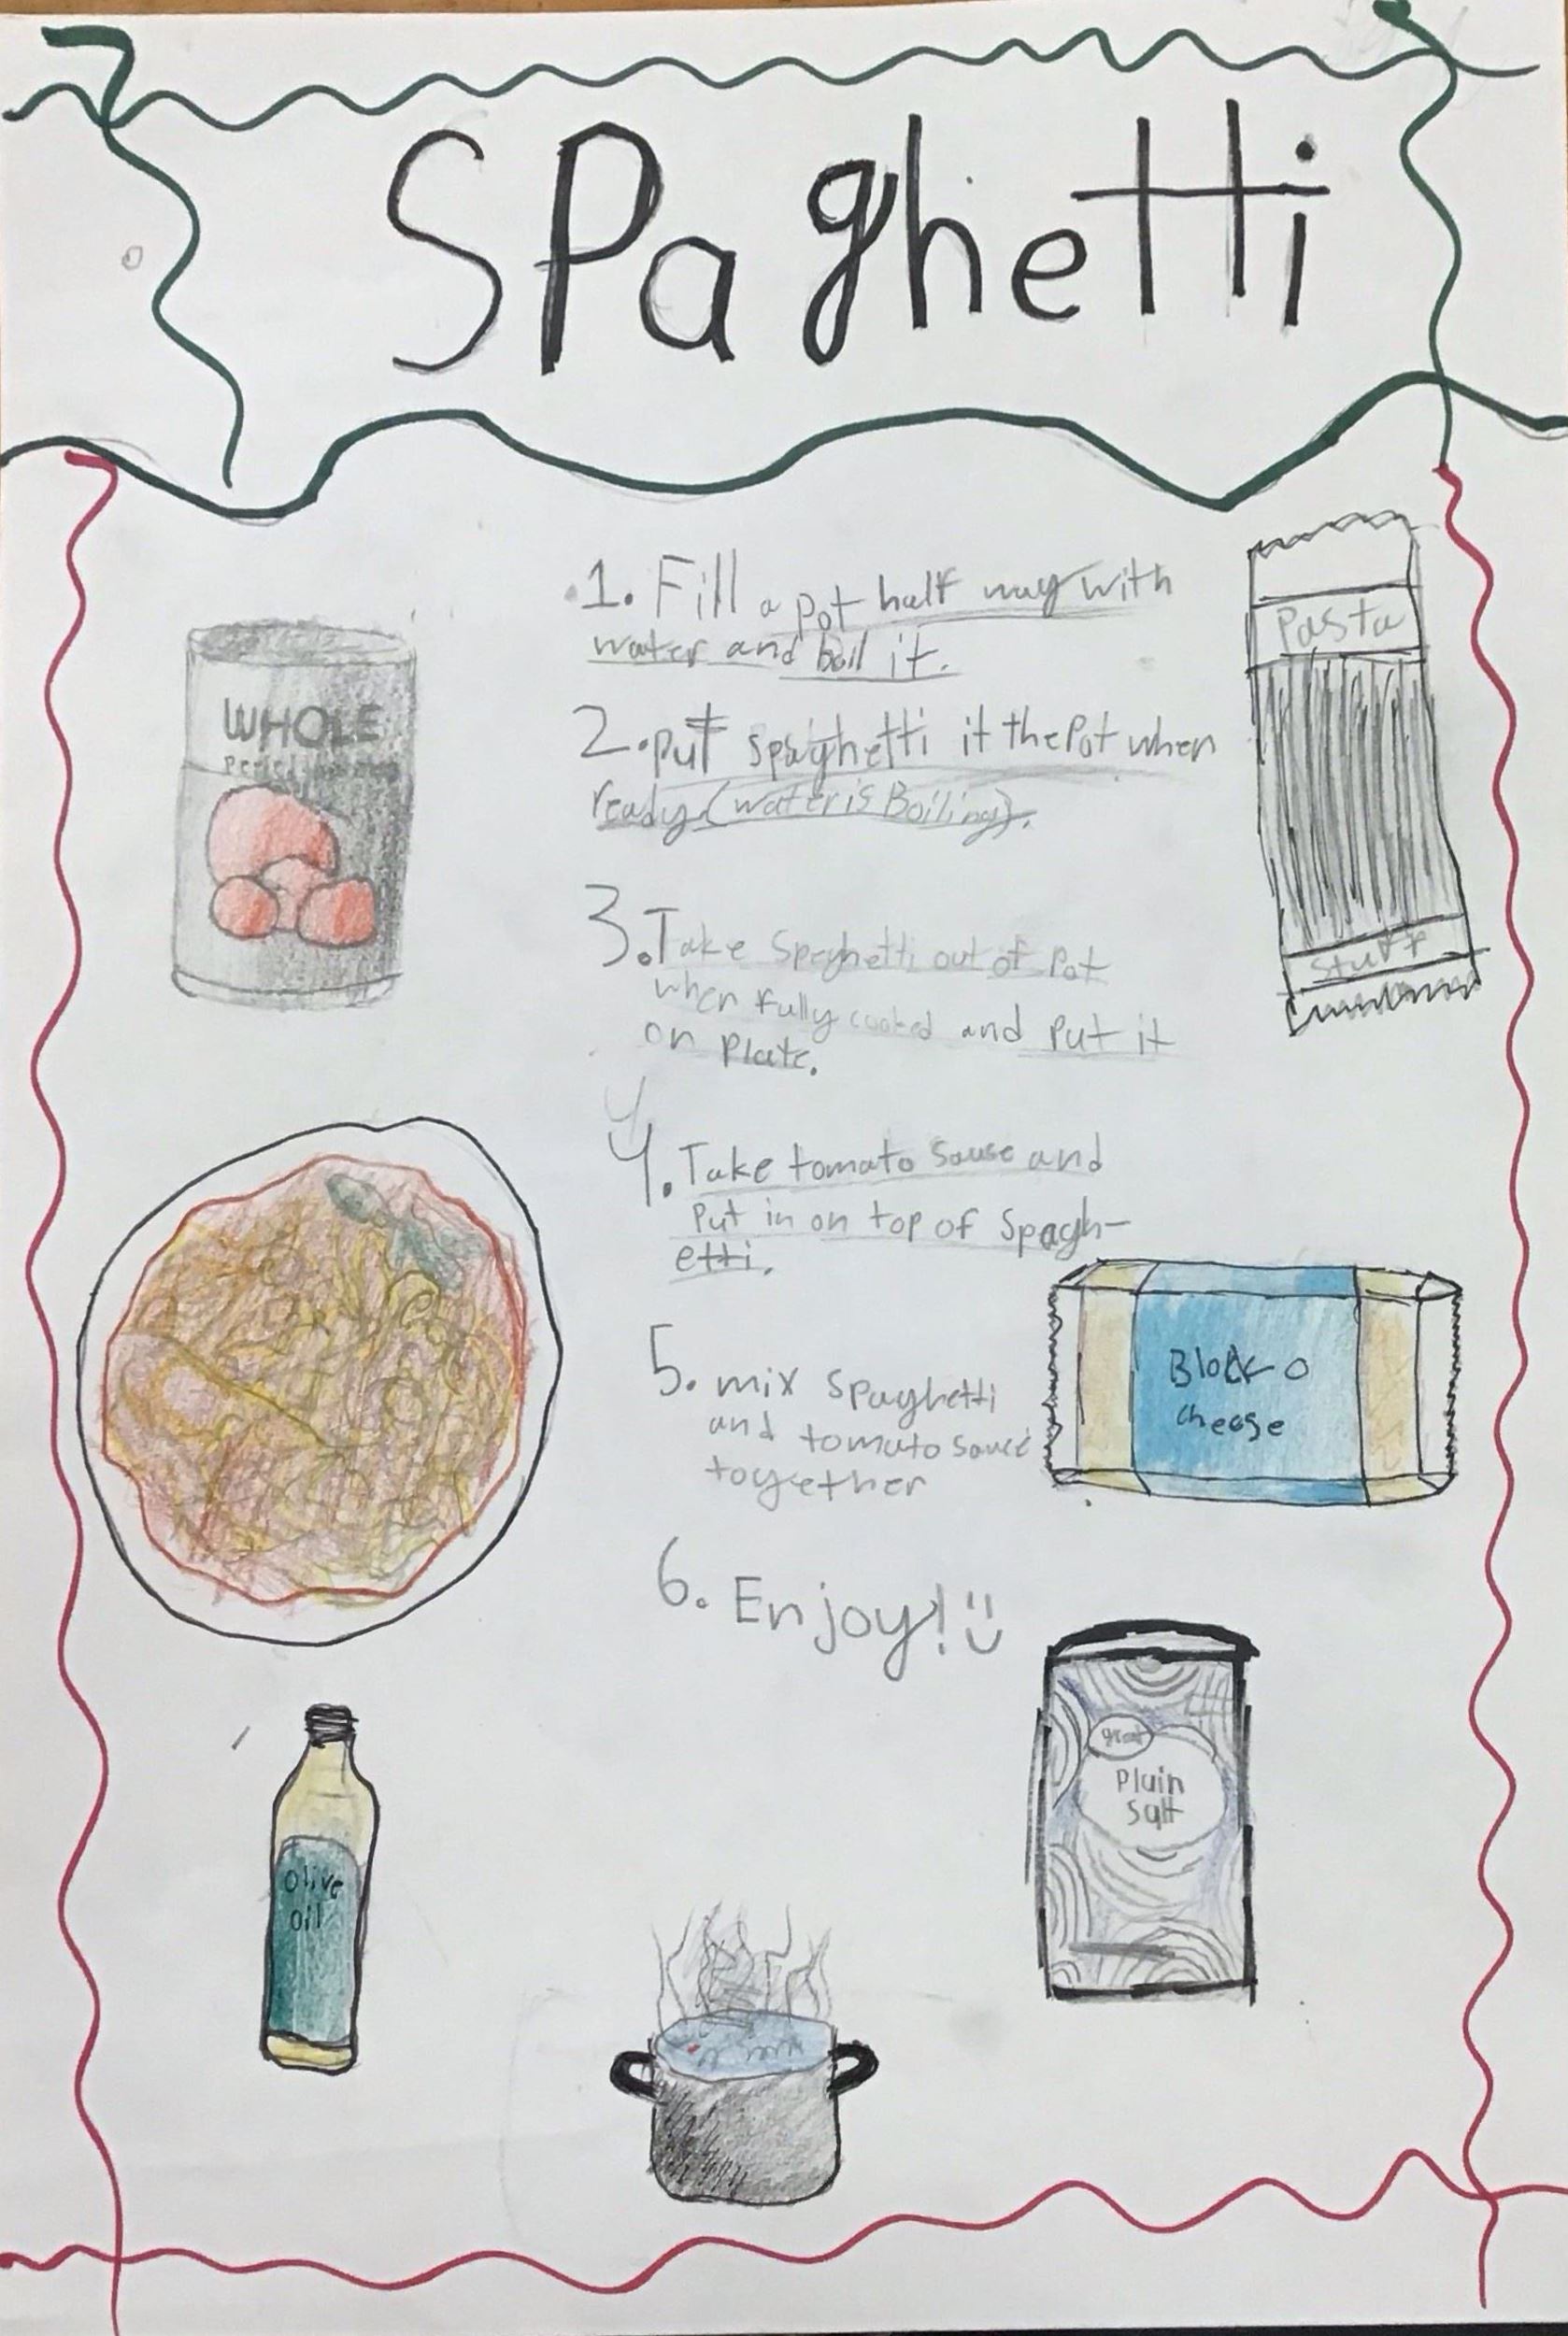 SPaghetti
1. Fill a pot half way with
water and boil it.
2. put spaghetti it the Pot when
ready (water is Boiling).
3. Take Spaghetti out of Pot
when fully cooked and Put it
on Plate.
4
4. Take tomato Sause and
Put in on top of Spagh-
etti.
5. mix Spaghetti
and tomato sauce
together
6. Enjoy!
WHOLE
Pasta
Stuff
Block O
cheese
Olive
oil
Plain
Salt